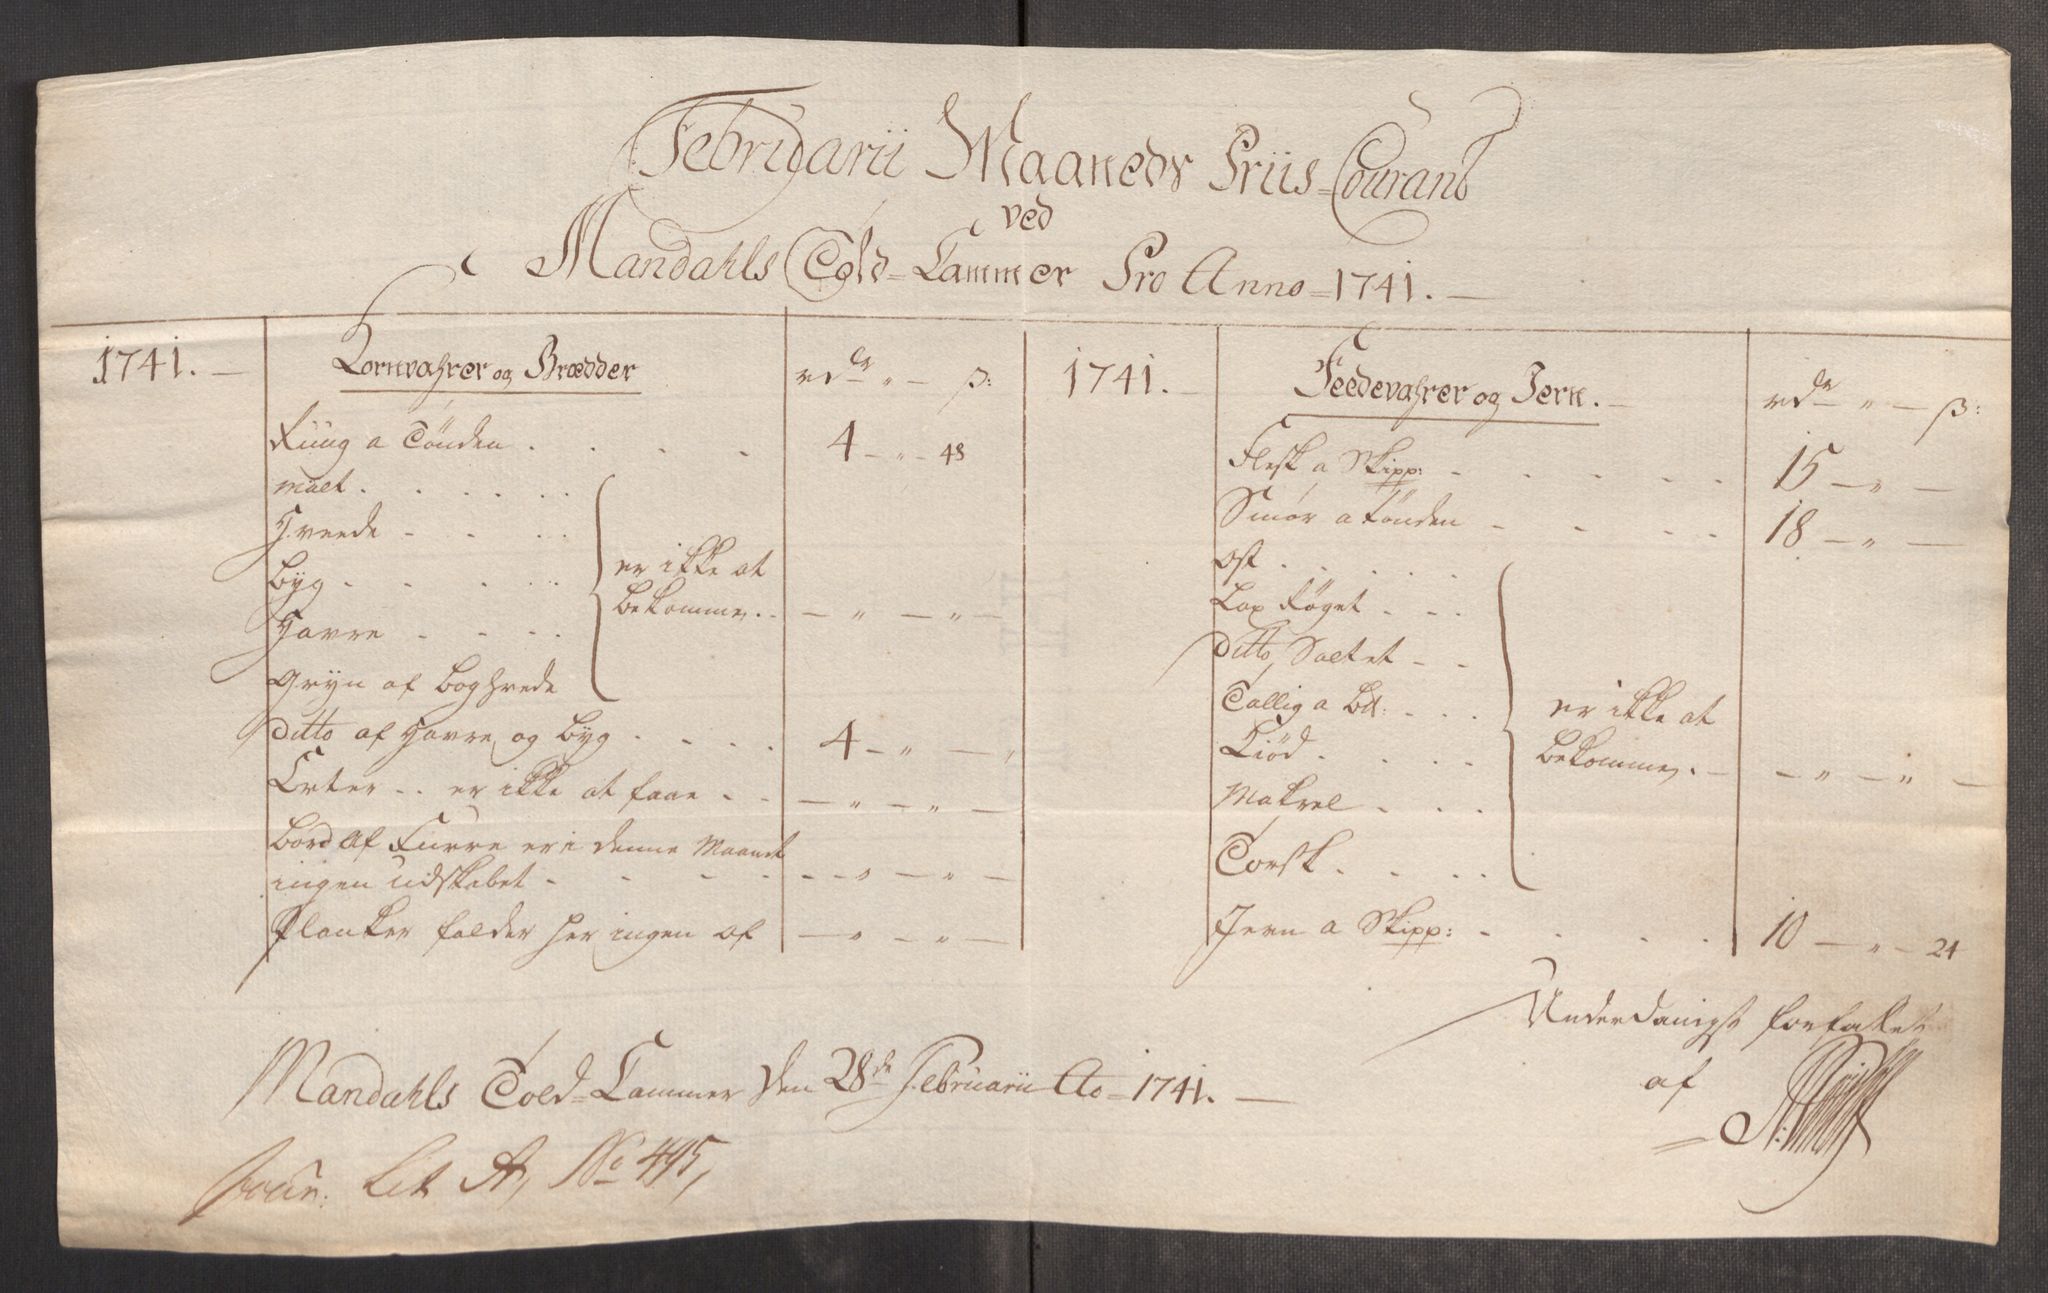 Februarii Maaneds Priis-Courant
ved
Mandahls Told-Cammer Pro Anno-1741.
1741. Kornvahrer og Brædder rdr ß:
Ruug a Tønden 4 - " - 48
Malt
Hveede
Byg
Havre
Gryn af Boghvede
er ikke at
bekomme. - " - " -
ditto af Havre og Byg 4 - " -
Erter .. er ikke at faae - " - " -
Bord af Furre er i denne Maanet
ingen udskebet - " - " -
Planker falder her ingen af - " - " -
1741. Feedevahrer og Jern. rdr ß:
Flesk a Skipp: 15 - " -
Smør a Tønden 18 - " -
Ost
Lax Røget
ditto, Saltet
Tallig a Bd:
Kiød
Makrel
Torsk
er ikke at
bekomme. - " - " -
Jern a Skipp: 10 - " - 24
Underdanigst forfattet
af
Mandahls Told-Cammer den 28de Februarii Ao-1741.
Jour: Lit A, No 495,